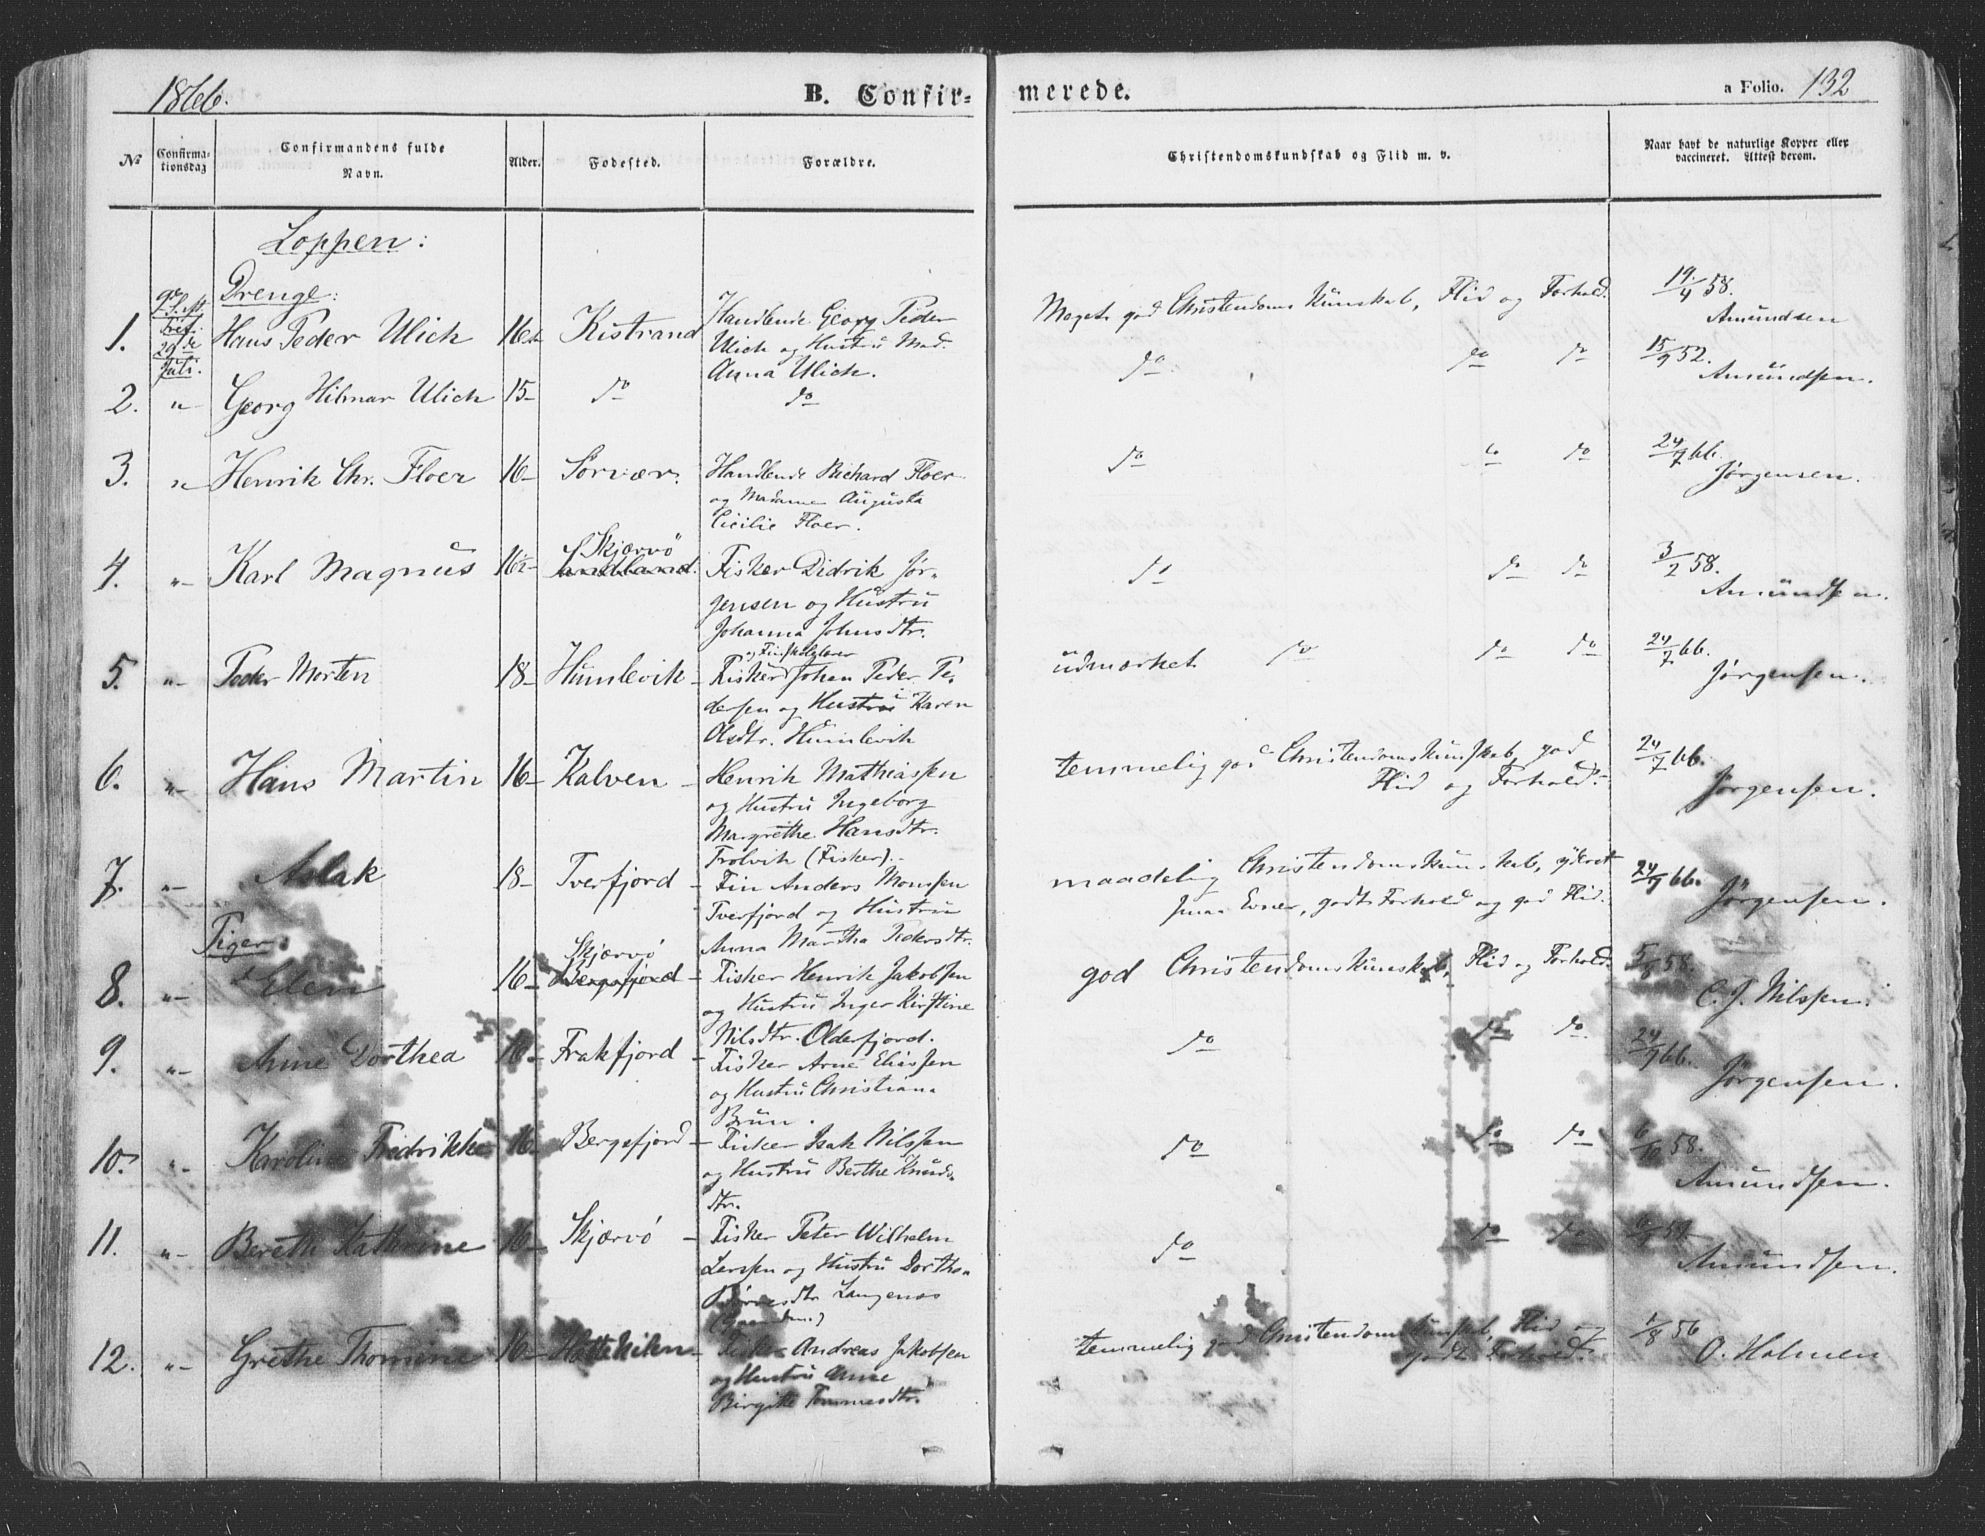 1866.
B. Confir=
merede.
a Folio. 132
№
Confirma-
tionsdag
Confirmandens fulde
Navn.
Alder.
Fødested.
Forældre.
Christendomskundskab og Flid m. v.
Naar havt de naturlige Kopper eller
vaccineret. Attest derom.
Loppen:
Drenge:
1.
29de
Juli.
Hans Peder Ulich
16
Kistrand
Handlende Georg Peder
Ulich og Hustru Mad.
Anna Ulich.
Meget god Christendoms Kunskab, Flid og Forhold.
19/4 58.
Amundsen
2.
"
Georg Hilmar Ulich
15-
do
do
do
do
do
15/9 52.
Amundsen.
3.
"
Henrik Chr. Floer
16-
Sørvær.
Handlende Richard Floer
og Madame Augusta
Cicilie Floer.
do
do
do
24/7 66.
Jørgensen.
4.
"
Karl Magnus
16½
Skjærvö
Sandland.
Fisker Didrik Jör-
gensen og Hustru
Johanna Johnsdtr.
do
do
do
3/2 58.
Amundsen.
5.
"
Peder Morten
18-
Humlevik-
Fisker Johan Peder Pe-
dersen og Hustru Karen
Olsdtr. Humlevik
udmærket do
do
do
24/7 66.
Jørgensen.
6.
"
Hans Martin
16-
Kalven -
Henrik Mathiassen
og Hustru Ingeborg
Margrethe Hansdtr.
Frolvik (Fisker).-
temmelig god Christendomskunskab, god
Flid og Forhold.-
24/7 66.
Jørgensen.
7.
"
Aslak
18-
Tverfjord -
Fin Anders Monsen
Tverfjord og Hustru
Anna Martha Pedersdtr.
maadelig Christendomskunskab, yderst
smaa Evner, godt Forhold og god Flid.
24/7 66.
Jørgensen.
Piger
8.
"
Elen
16-
Skjærvö
Bergsfjord -
Fisker Henrik Jakobsen
og Hustru Inger Kirstine
Nilsdtr. Olderfjord.
god Christendomskunskab, Flid og Forhold.
5/8 58.
C. J. Nilssen.
9.
"
Anne Dorthea
16-
Frakfjord -
Fisker Arne Eliassen
og Hustru Christiana
Brun.
do
do
do
24/7 66.
Jørgensen.
10.
"
Karoline Fredrikke
16
Bergsfjord -
Fisker Isak Nilssen
og Hustru Berthe Knuds-
dtr.
do
do
do
6/10 58.
Amundsen.
11.
"
Bereth Kathrine
16-
Skjærvö -
Fisker Peter Wilhelm
Larssen og Hustru Dorthea
Langenæs
do
do
do
Amundsen.
12.
"
Grethe Thomine
16-
-
Fisker Andreas Jakobsen
og Hustru Anne
Birgitte Tommesdtr.
temmelig god Christendomskunskab, Flid og
godt Forhold.
1/8 56
O. Holmen